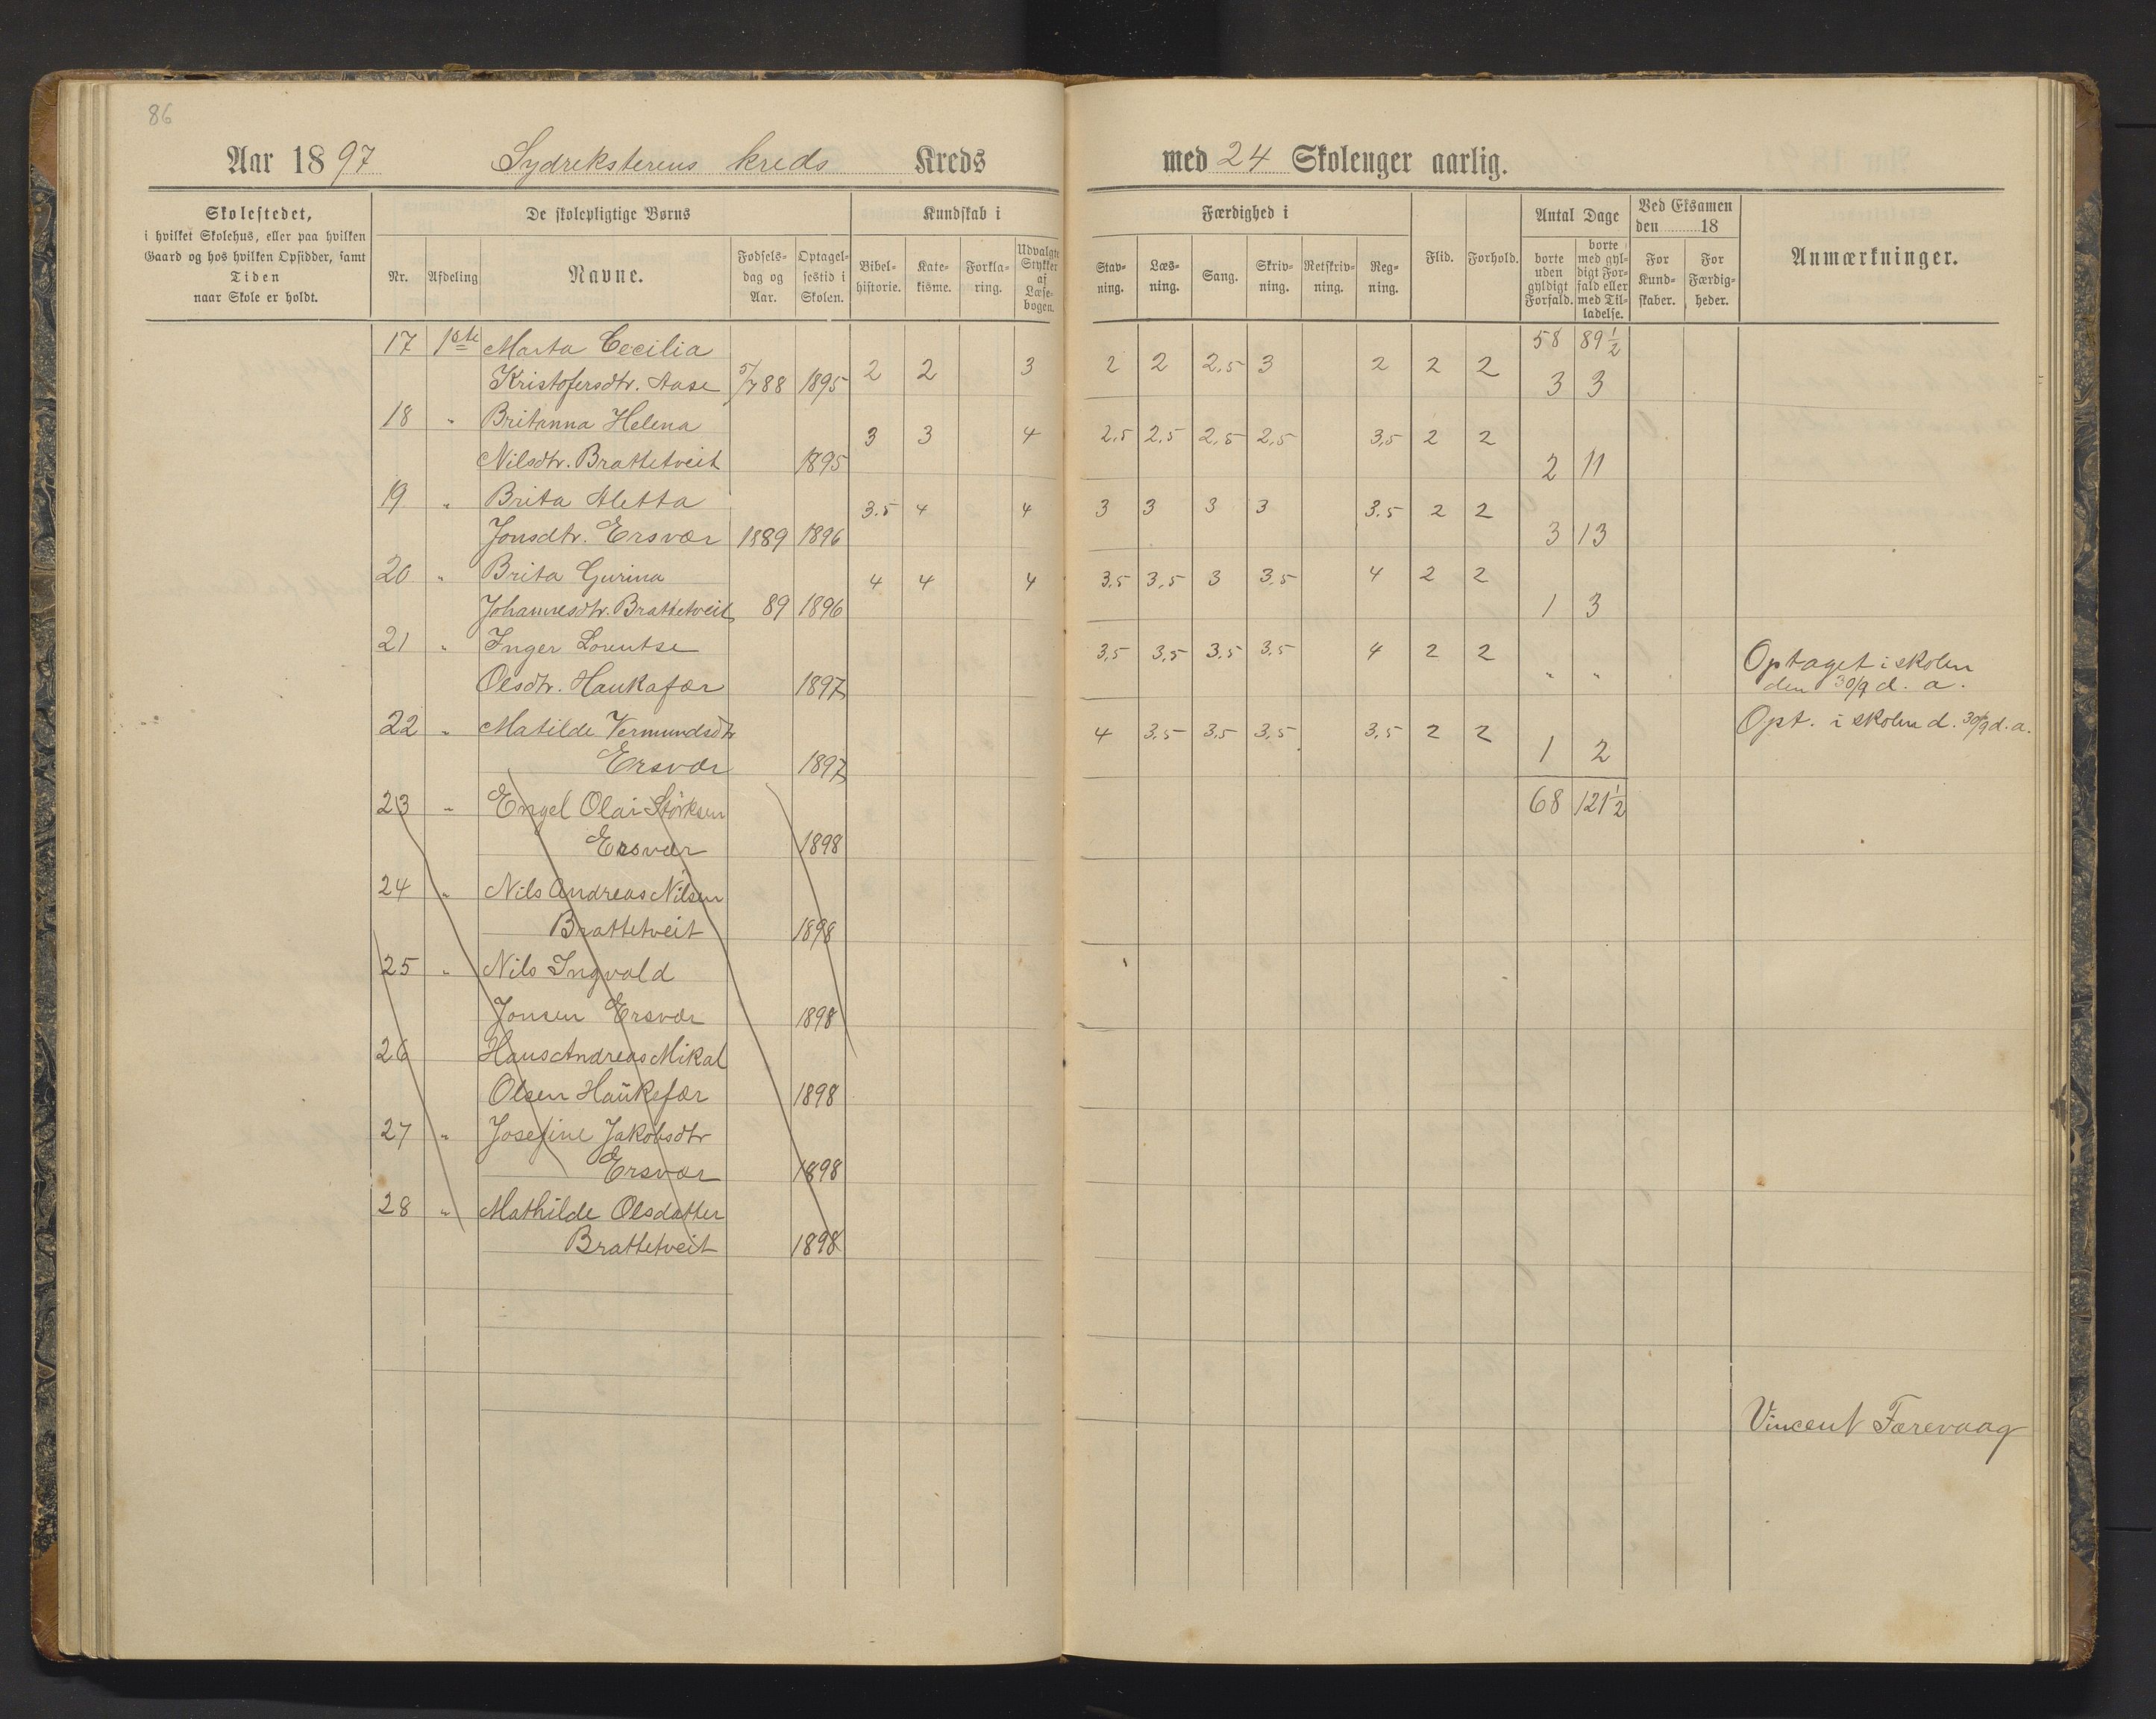 86
Aar 1897 Sydreksterens kreds Kreds med 24 Skolenger aarlig.
Skolestedet,
i hvilket Skolehus, eller paa hvilken
Gaard og hos hvilken Opsidder, samt
Tiden
naar Skole er holdt.
De skolepligtige Børns
Nr. Afdeling Navne. Fødsels-dag og Aar. Optagel-sestid i Skolen.
Kundskab i
Bibel-historie. Kate-kisme. Forkla-ring. Udvalgte Stykker af Læse-bogen.
Færdighed i
Stav-ning. Læs-ning. Sang. Skriv-ning. Retskriv-ning. Reg-ning.
Flid. Forhold.
Antal Dage
borte uden gyldigt Forfald. borte med gyl-digt For-fald eller med Til-ladelse.
Ved Eksamen
den 18
For Kund-skaber. For Færdig-heder.
Anmærkninger.
17 1ste Marta Cecilia 58 89 1/2
Kristofersdtr. Aase 5/7 88 1895 2 2 3 2 2 2,5 3 2 2 2 3 3
18 " Britanna Helena 3 3 4 2,5 2,5 2,5 2,5 3,5 2 2
Nilsdtr. Brattetveit 1895 2 11
19 " Brita Aletta 3.5 4 4 3 3 3 3 3.5 2 2
Jonsdtr. Ersvær 1889 1896 3 13
20 " Brita Gurina 4 4 4 3,5 3,5 3 3,5 4 2 2
Johannesdtr. Brattetveit 89 1896 1 3
21 " Inger Lorentse 3,5 3,5 3,5 3,5 4 2 2 Optaget i skolen
Olsdtr. Haukafær 1897 " " den 30/9 d. a.
22 " Matilde Vermundsdtr 4 3,5 3,5 3,5 3,5 2 2 Opt. i skolen d. 30/9 d. a.
Ersvær 1897 1 2
23 " Engel Olai Størksen 68 121 1/2
Ersvær 1898
24 " Nils Andreas Nilsen
Brattetveit 1898
25 " Nils Ingvald
Jonsen Ersvær 1898
26 Hans Andreas Mikal
Olsen Haukefær 1898
27 " Josefine Jakobsdtr
Ersvær 1898
28 " Mathilde Olsdatter
Brattetveit 1898
Vincent Færevaag